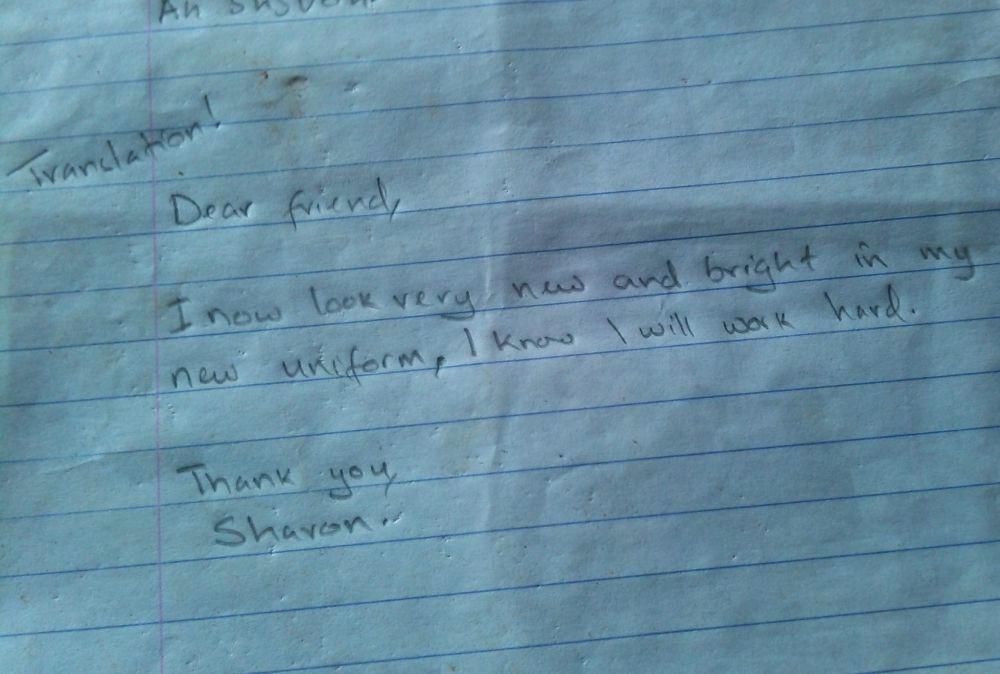 Translation!
Dear friend,
I now look very new and bright in my
new uniform, I know I will work hard.
Thank you,
Sharon.